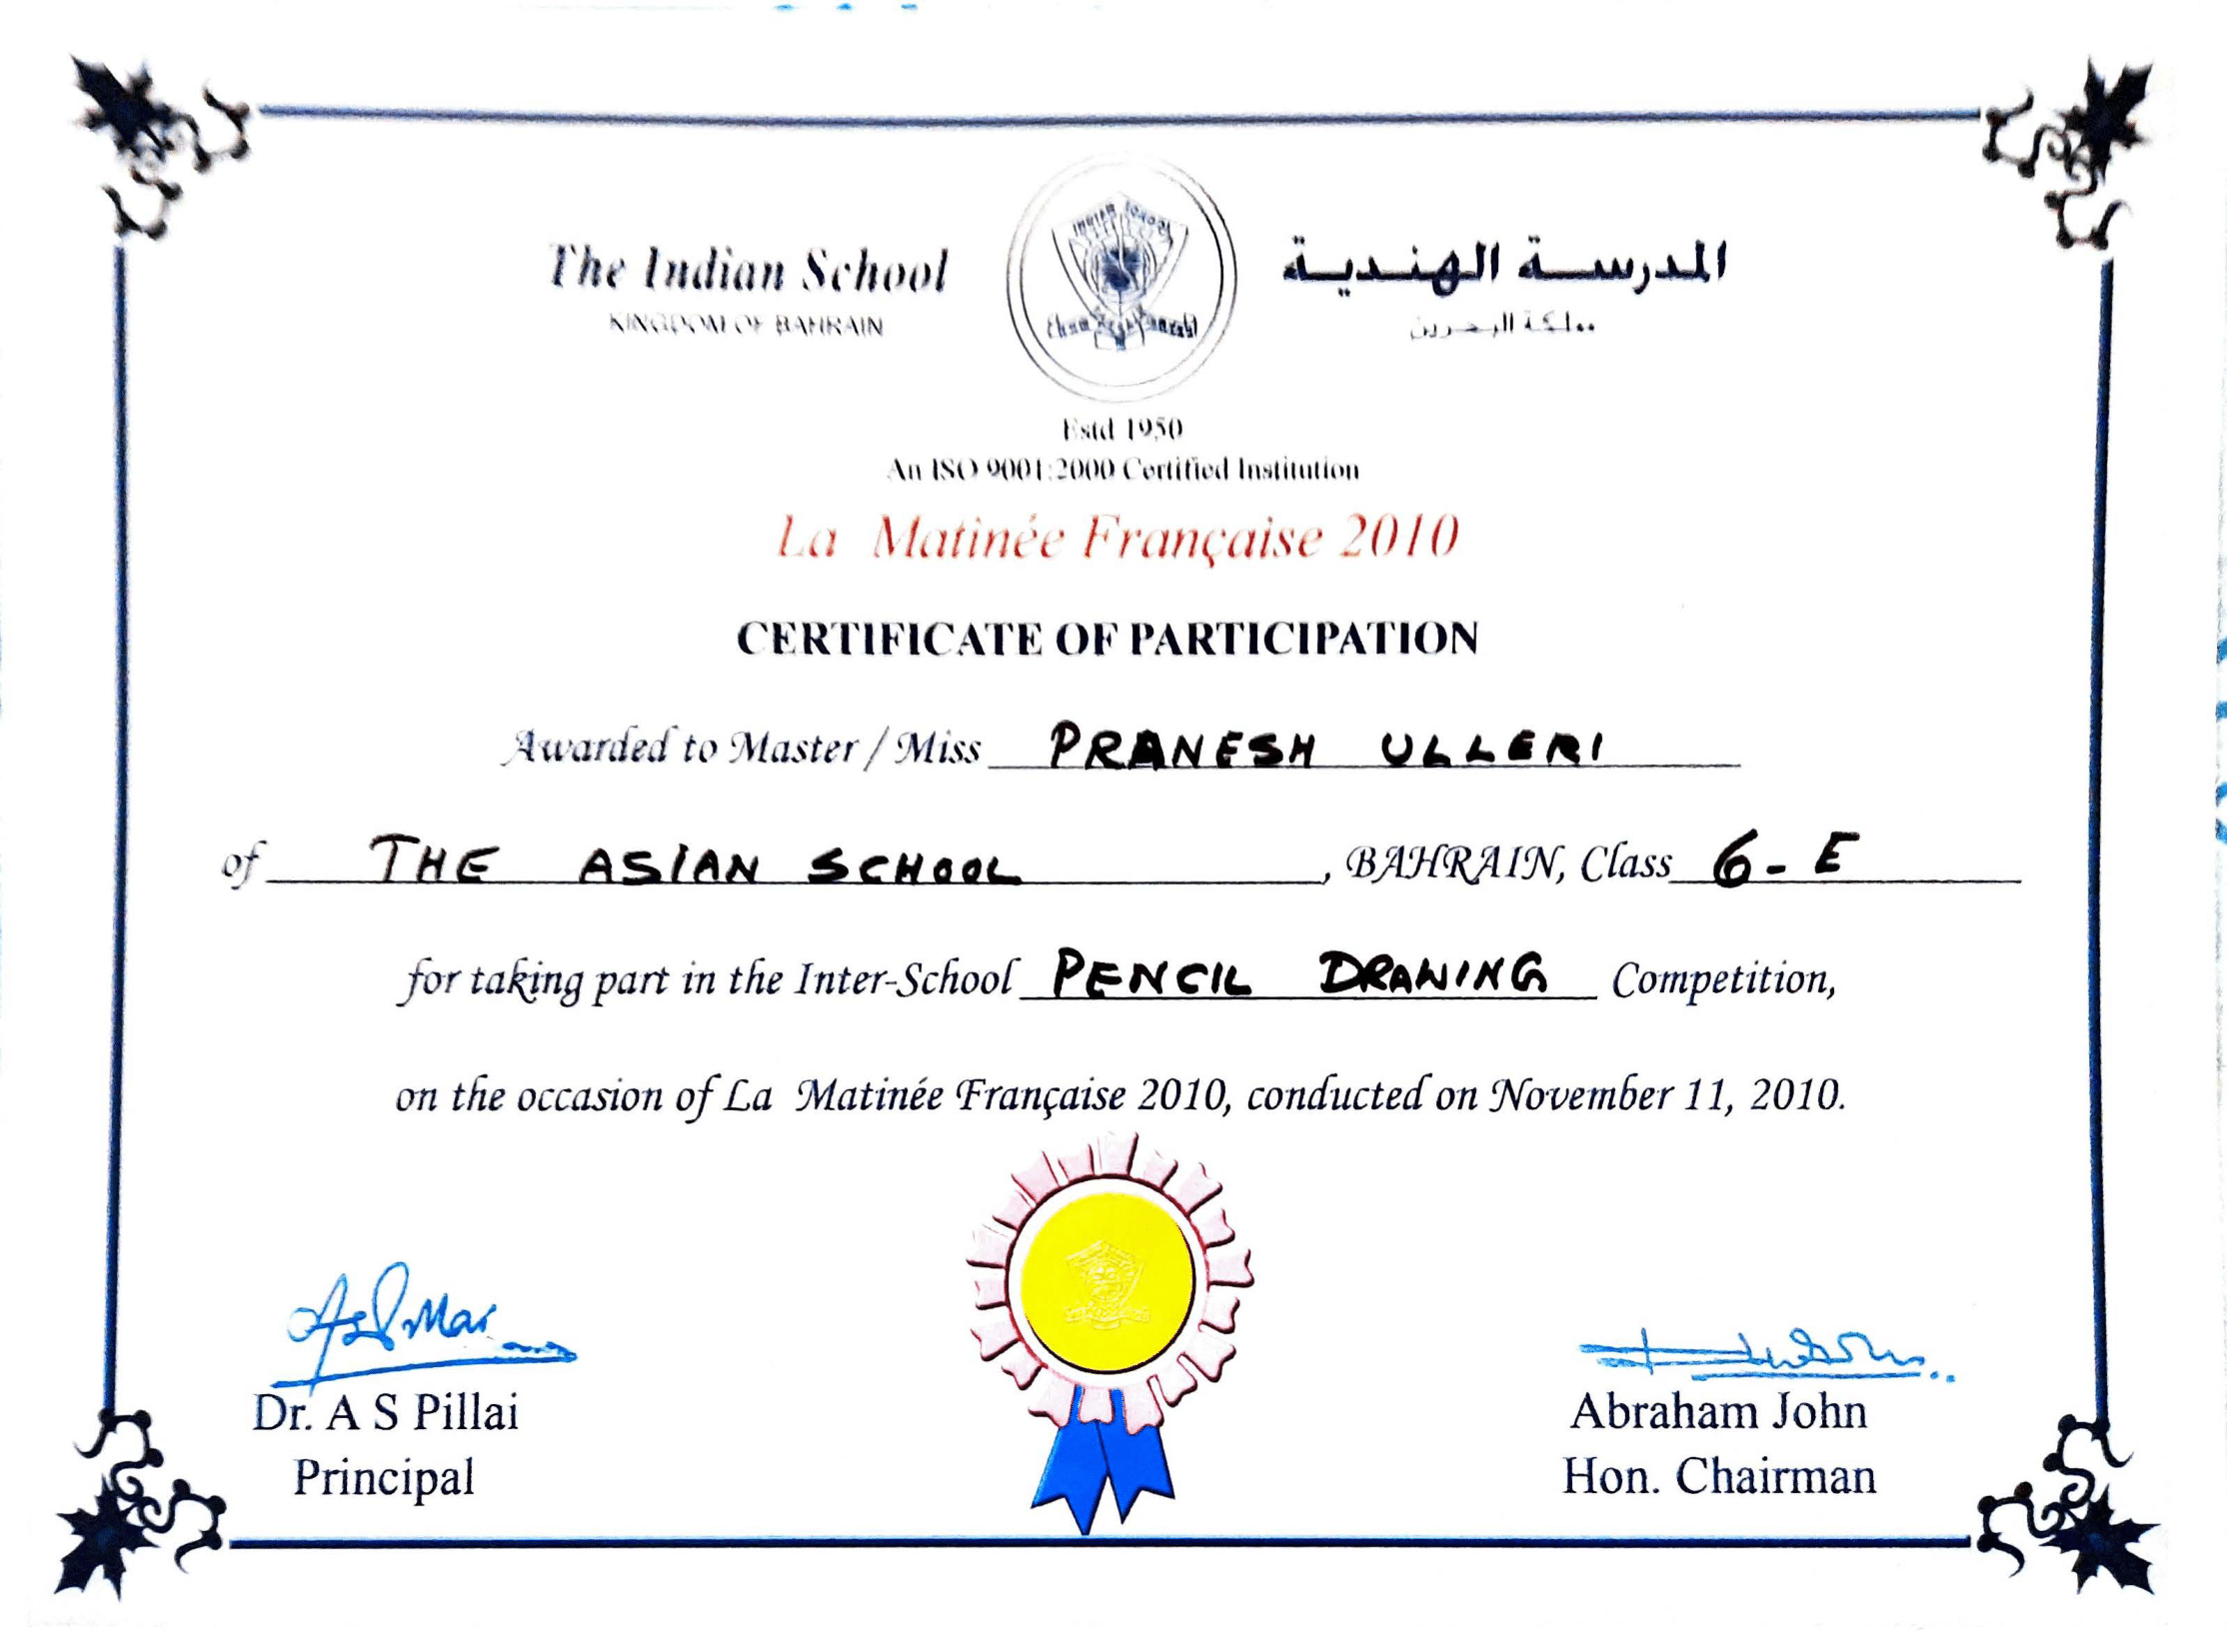 The Indian School
المدرسة الهندية
KINGDOM OF BAHRAIN
مملكة البحرين
INDIAN SCHOOL
Estd 1950
An ISO 9001:2000 Certified Institution
La Matinée Française 2010
CERTIFICATE OF PARTICIPATION
Awarded to Master / Miss PRANESH ULLERI
of THE ASIAN SCHOOL, BAHRAIN, Class 6-E
for taking part in the Inter-School PENCIL DRAWING Competition,
on the occasion of La Matinée Française 2010, conducted on November 11, 2010.
Dr. A S Pillai
Principal
Abraham John
Hon. Chairman